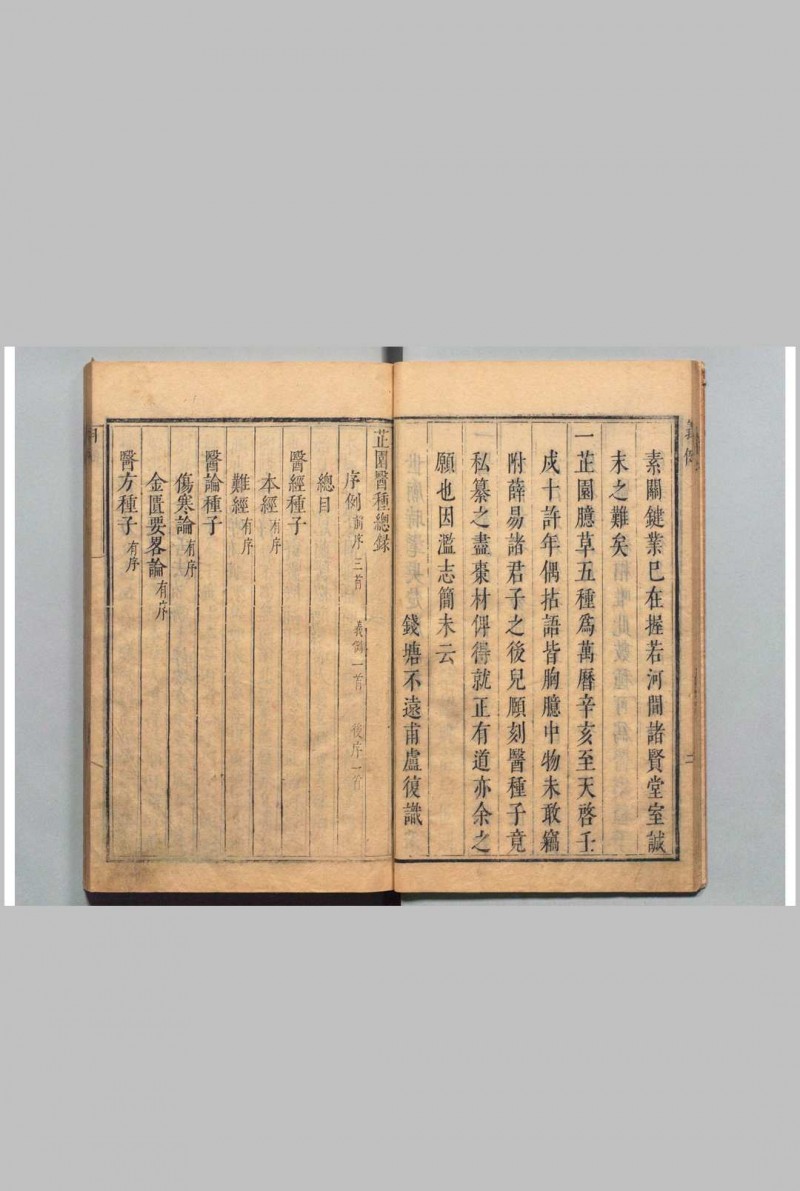 素關鍵業已在握若河間諸賢堂室誠
末之難矣
一芷園臆草五種爲萬曆辛亥至天啓壬
戌十許年偶拈語皆胸臆中物未敢竊
附薛易諸君子之後兒願刻醫種子竟
私纂之盡棗材俾得就正有道亦余之
願也因濫志簡末云
錢塘不遠甫盧復識
二
芷園醫種總錄
序例 前序三首 義例一首 後序一首
總目
醫經種子
本經 有序
難經 有序
醫論種子
傷寒論 有序
金匱要畧論 有序
醫方種子 有序